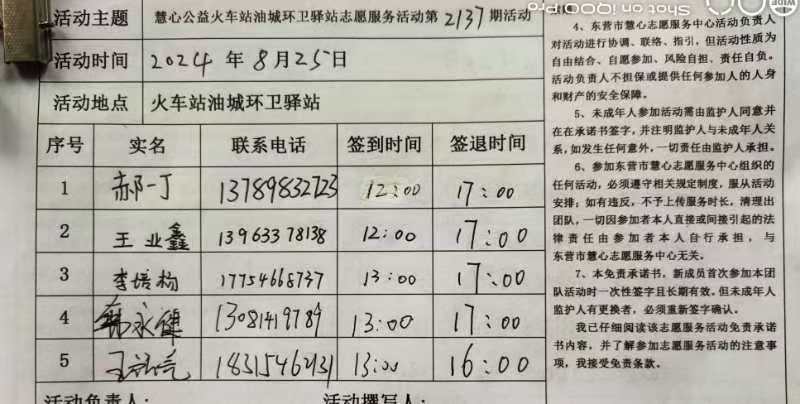 Shot on iQOO Pro
活动主题 慧心公益火车站油城环卫驿站志愿服务活动第2137期活动
活动时间 2024年8月25日
活动地点 火车站油城环卫驿站
序号 实名 联系电话 签到时间 签退时间
1 郝一丁 13789832723 12:00 17:00
2 王业鑫 13963378138 12:00 17:00
3 李培构 17754668737 13:00 17:00
4 韩永健 13081419789 13:00 17:00
5 王 18315462131 13:00 16:00
活动负责人: 活动撰写人:
4、东营市慧心志愿服务中心活动负责人
对活动进行协调、联络、指引,但活动性质为
自由结合、自愿参加、风险自担、责任自负。
活动负责人不担保或提供任何参加人的人身
和财产的安全保障。
5、未成年人参加活动需由监护人同意并
在在承诺书签字,并注明监护人与未成年人关
系,如发生任何意外,一切责任由监护人承担。
6、参加东营市慧心志愿服务中心组织的
任何活动,必须遵守相关规定制度,服从活动
安排;如有违反,不予上传服务时长,清理出
团队,一切因参加者本人直接或间接引起的法
律责任由参加者本人自行承担,与
东营市慧心志愿服务中心无关。
7、本免责承诺书,新成员首次参加本团
队活动时一次性签字且长期有效。但未成年人
监护人有更换者,必须重新签字确认。
我已仔细阅读该志愿服务活动免责承诺
书内容,并了解参加志愿服务活动的注意事
项,我接受免责条款。